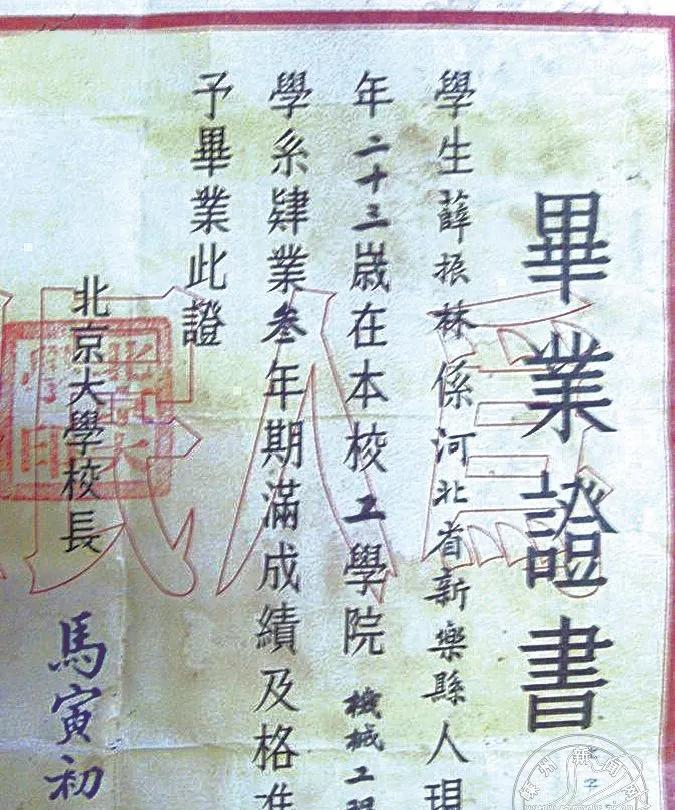 畢業證書
學生薛振林係河北省新樂縣人現
年二十三歲在本校工學院機械工程
學系肄業叁年期滿成績及格准
予畢業此證
北京大學校長 馬寅初